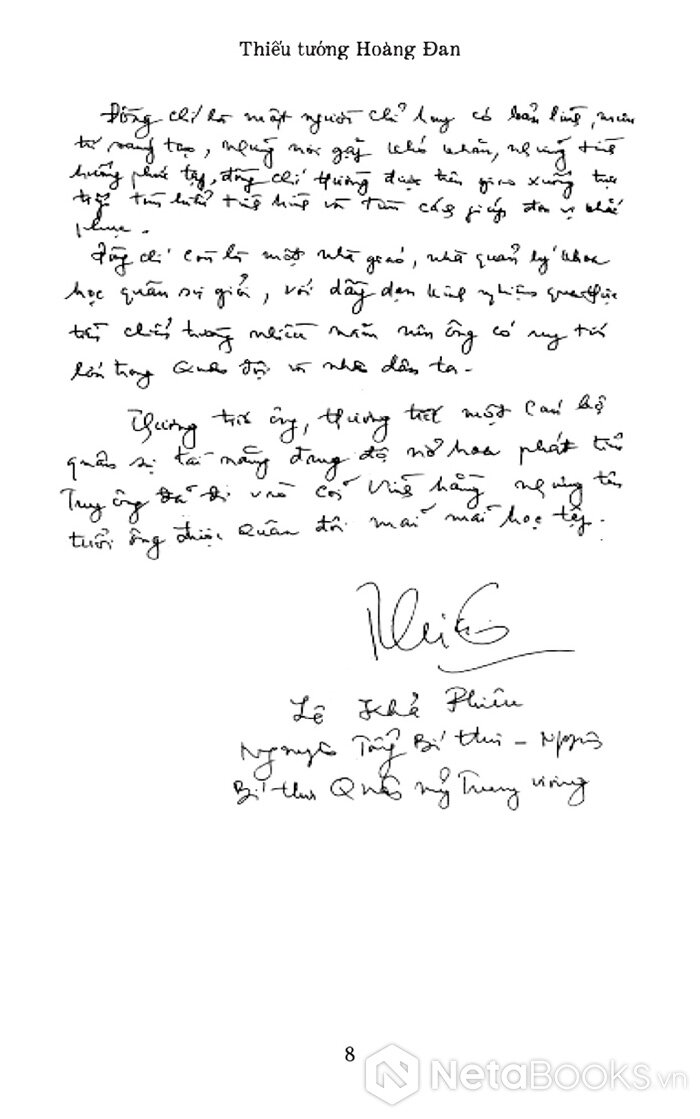 Thiếu tướng Hoàng Đan
Đồng chí là một người chỉ huy có bản lĩnh, mưu
trí sáng tạo, những nơi gặp khó khăn, những tình
huống phức tạp, đồng chí thường được trên giao xuống trực
tiếp tìm hiểu tình hình và tìm cách giúp đơn vị khắc
phục.
Đồng chí còn là một nhà giáo, nhà quản lý khoa
học quân sự giỏi, với dầy dạn kinh nghiệm qua thực
tiễn chiến trường nhiều năm nên ông có uy tín
lớn trong Quân đội và nhân dân ta.
Thương tiếc ông, thương tiếc một cán bộ
quân sự tài năng đang độ nở hoa phát tiết
Tuy ông đã đi vào cõi vĩnh hằng nhưng tên
tuổi ông được Quân đội mãi mãi học tập.
Lê Khả Phiêu
Nguyên Tổng Bí thư - Nguyên
Bí thư Quân ủy Trung ương
8
NetaBooks.vn